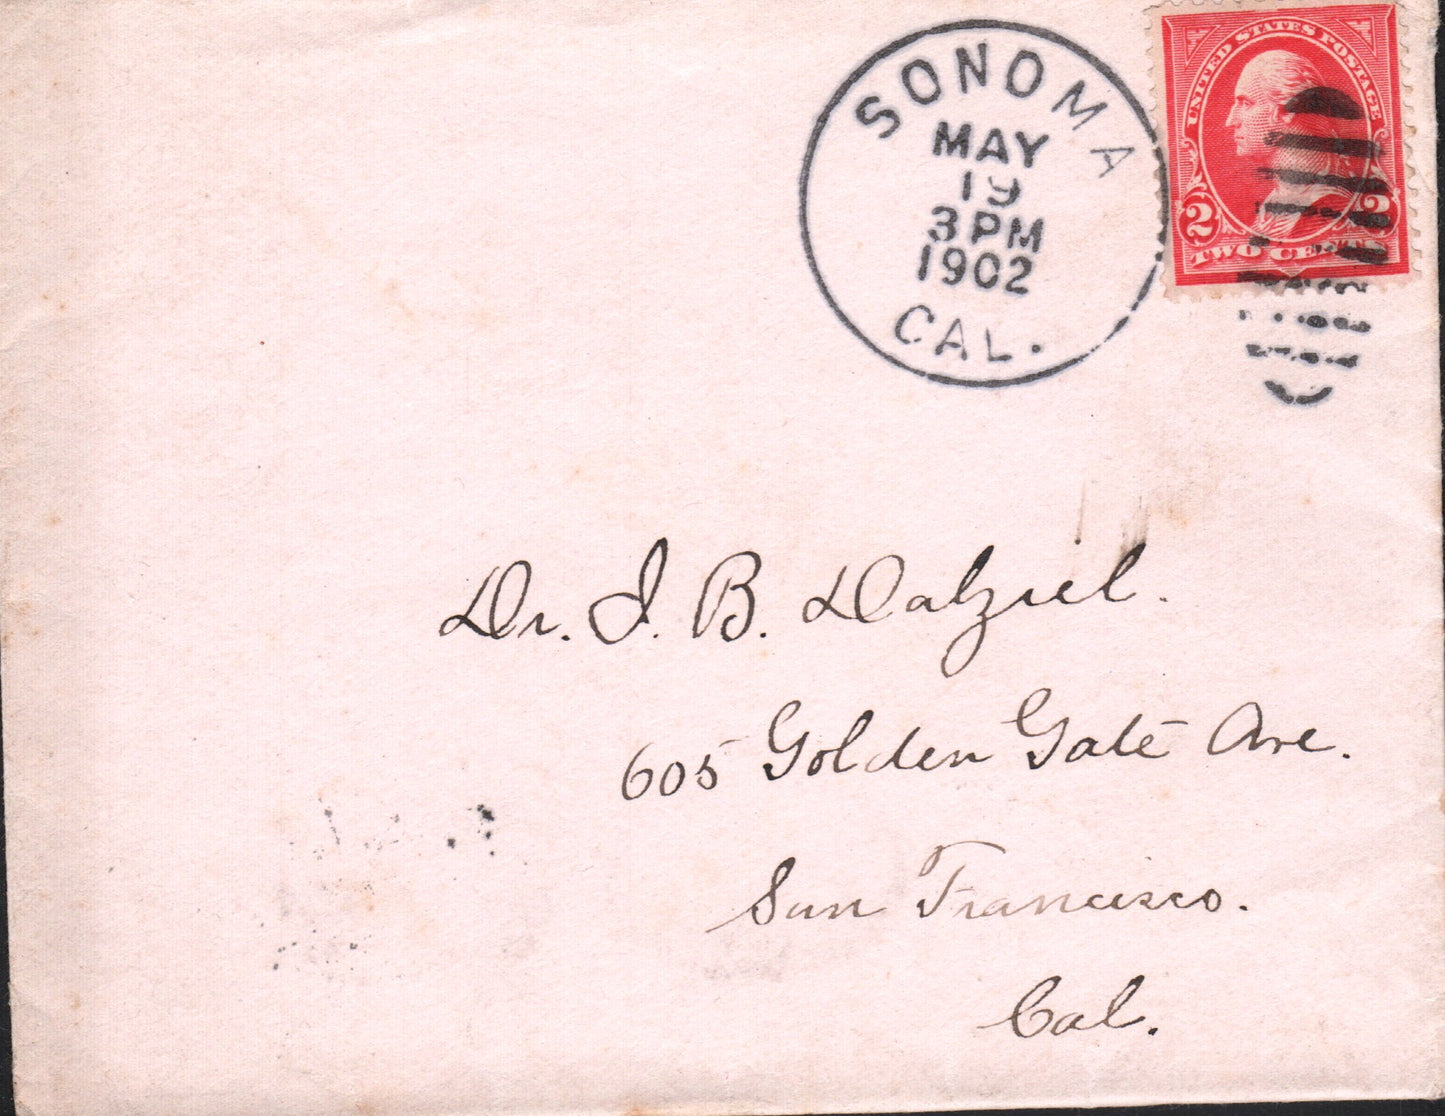 SONOMA
MAY
19
3 PM
1902
CAL.
UNITED STATES POSTAGE
2 2
TWO CENTS
Dr. J. B. Dalziel.
605 Golden Gate Ave.
San Francisco.
Cal.